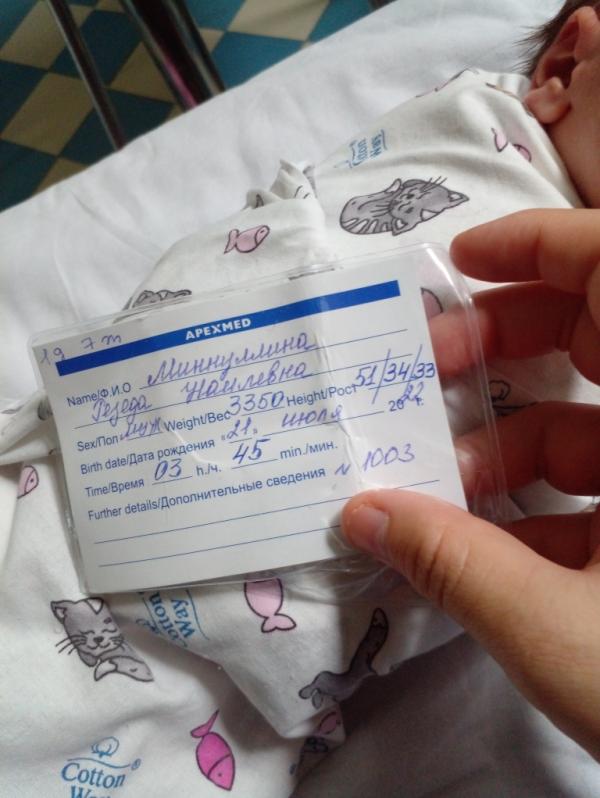 19 7 т
APEXMED
Name/Ф.И.О Миннуллина
Резеда Наилевна
Sex/Пол муж Weight/Вес 3350 Height/Рост 51/34/33
Birth date/Дата рождения "21" июля 2022 г.
Time/Время 03 h./ч. 45 min./мин.
Further details/Дополнительные сведения N 1003
Cotton Way
Cotton